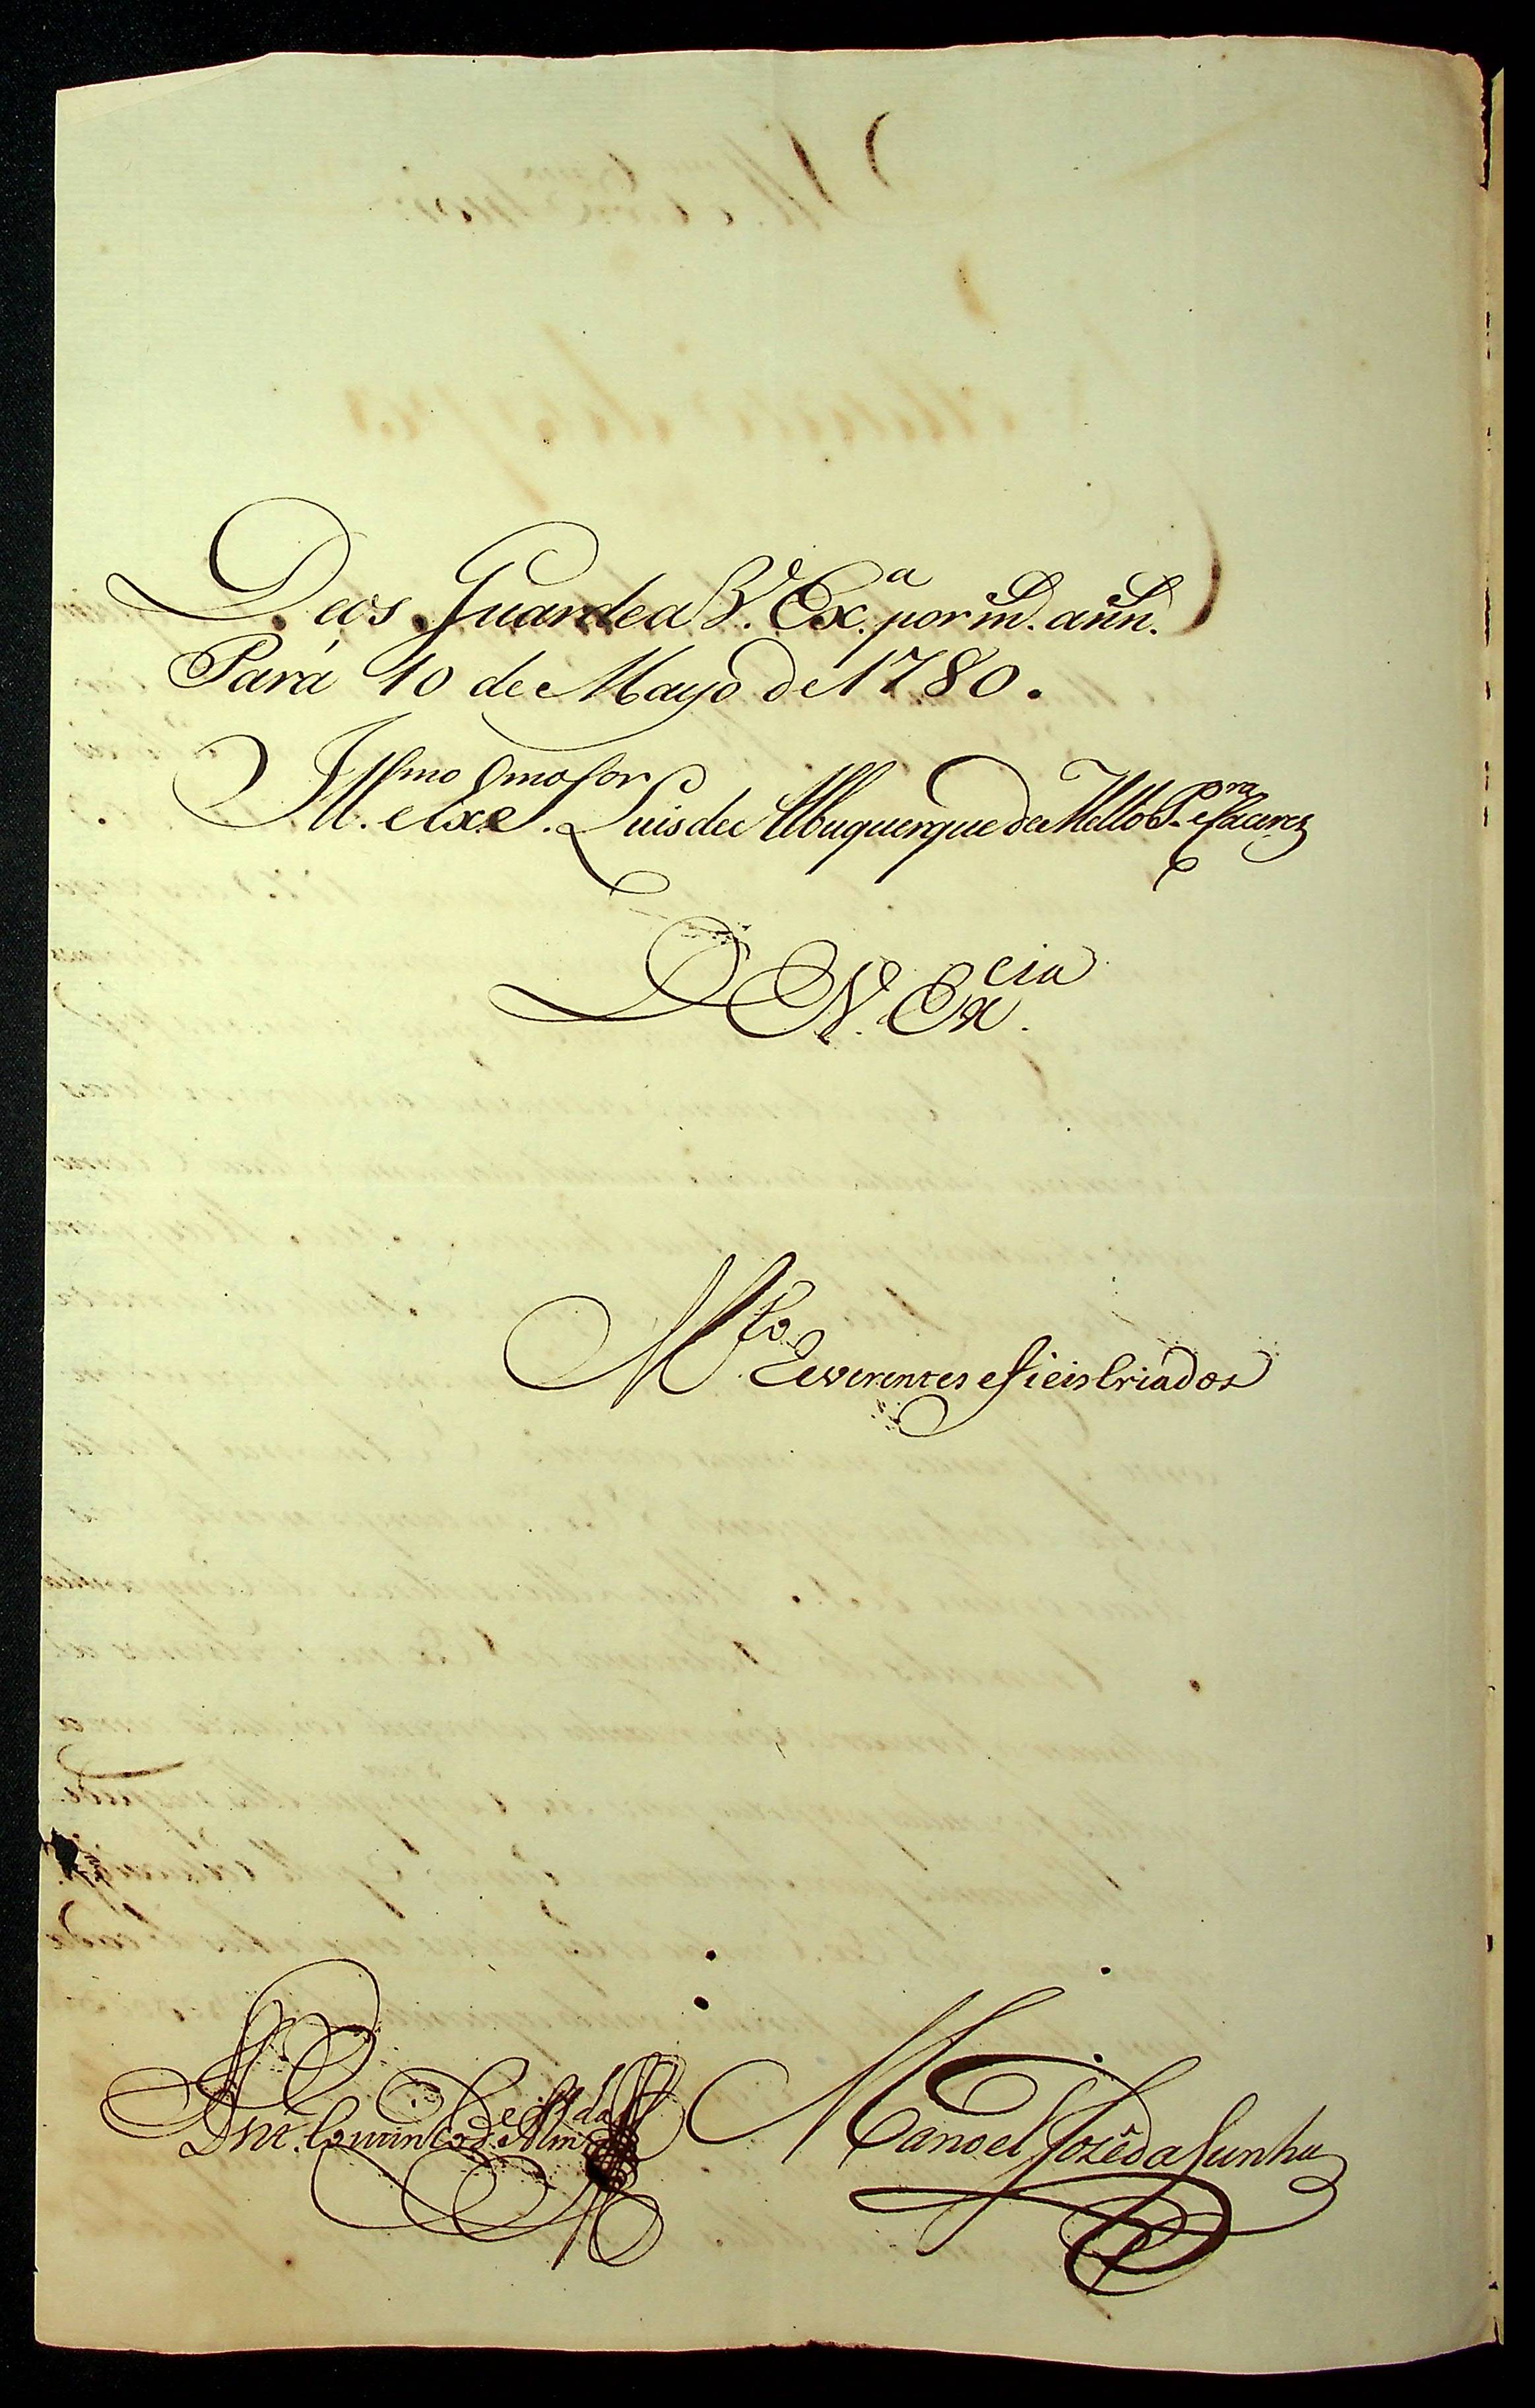 Deos Guarde a V. Ex.ª por m. ann.
Pará 10 de Mayo de 1780.
Ill.mo e Ex.mo Sor Luis de Albuquerque de Mello P.ra e Caceres
D V. Ex.cia
M.to Reverentes e fieis Criados
Manoel Jozé da Cunha